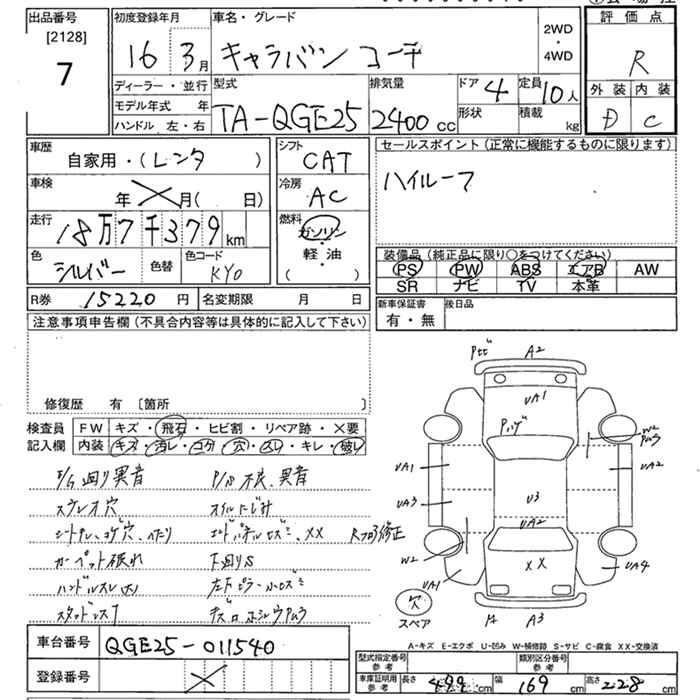 出品番号
[2128]
7
初度登録年月
16 3月
車名・グレード
キャラバン コーチ
2WD
・
4WD
評価点
R
外装 内装
D C
ディーラー・並行
モデル年式 年
ハンドル 左・右
型式
TA-QGE25
排気量
2400 cc
ドア 4
形状
定員 10人
積載 kg
車歴
自家用・(レンタ )
車検
年 月( 日)
走行
18万7千379km
色
シルバー
色替
色コード
KY0
R券 15220 円 名変期限 月 日
シフト
CAT
冷房
AC
燃料
ガソリン
・
軽油
( )
セールスポイント (正常に機能するものに限ります)
ハイルーフ
装備品 (純正品に限り○をつけてください)
PS PW ABS エアB AW
SR ナビ TV 本革
新車保証書
有・無
後日品
注意事項申告欄 (不具合内容等は具体的に記入して下さい)
修復歴 有 [箇所
検査員
記入欄
FW キズ・飛石・ヒビ割・リペア跡・×要
内装 キズ・汚レ・コゲ・穴・スレ・キレ・破レ
E/G廻り異音
P/S不良、異音
ステレオ穴
オイルにじみ
カーペット破れ
下廻りS
R フロア修正
車台番号 QGE25-011540
登録番号
A2
UA1
Pハゲ
W2
UA1
UA2
UA3
U3
UA2
W2
××
UA1
UA4
穴
スペア
A3
A-キズ E-エクボ U-凹み W-補修跡 S-サビ C-腐食 XX-交換済
型式指定番号
参考
類別区分番号
参考
車庫証明用
参考
長さ 499 cm 幅 169 cm 高さ 228 cm